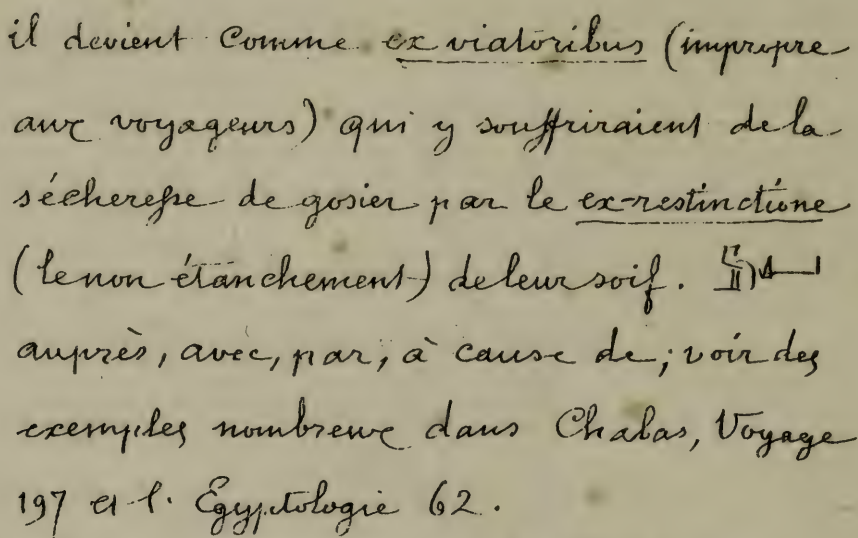 il devient Comme ex viatoribus (impropre
aux voyageurs) qui y souffriraient de la
sécheresse de gosier par le ex-restinctione
(le non étanchement) de leur soif.
auprès, avec, par, à cause de; voir des
exemples nombreux dans Chabas, Voyage
197 et l. Egyptologie 62.